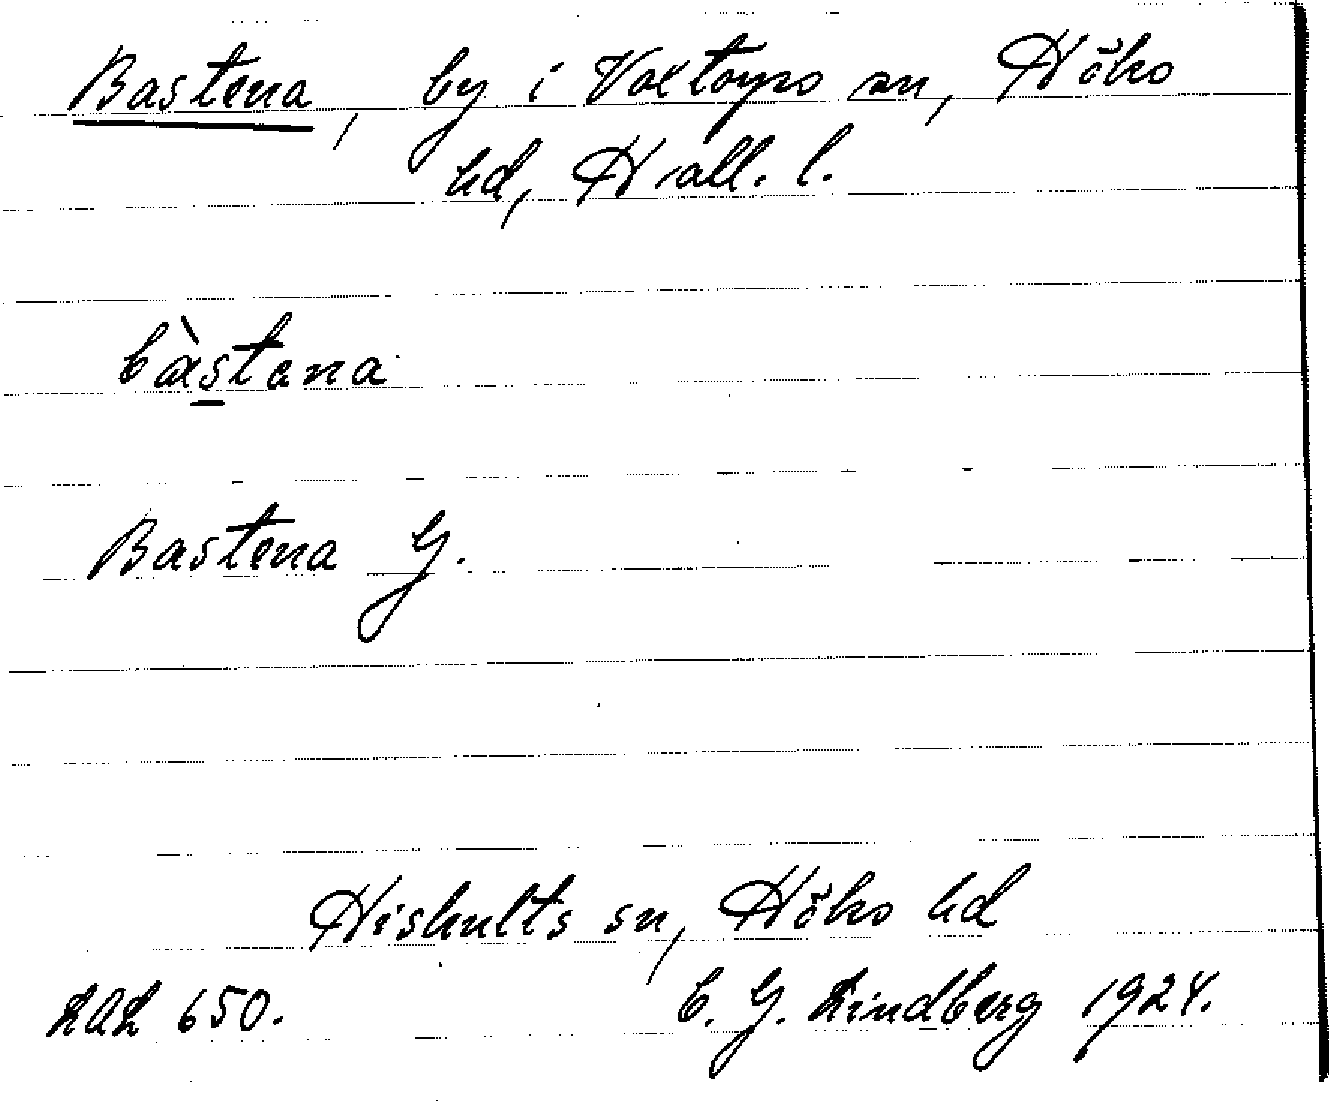 Bastena, by i Voxtorps sn, Höks
hd, Hall. l.
bàstana
Bastena G.
Hishults sn, Höks hd
LAL 650.
C. G. Lindberg 1924.